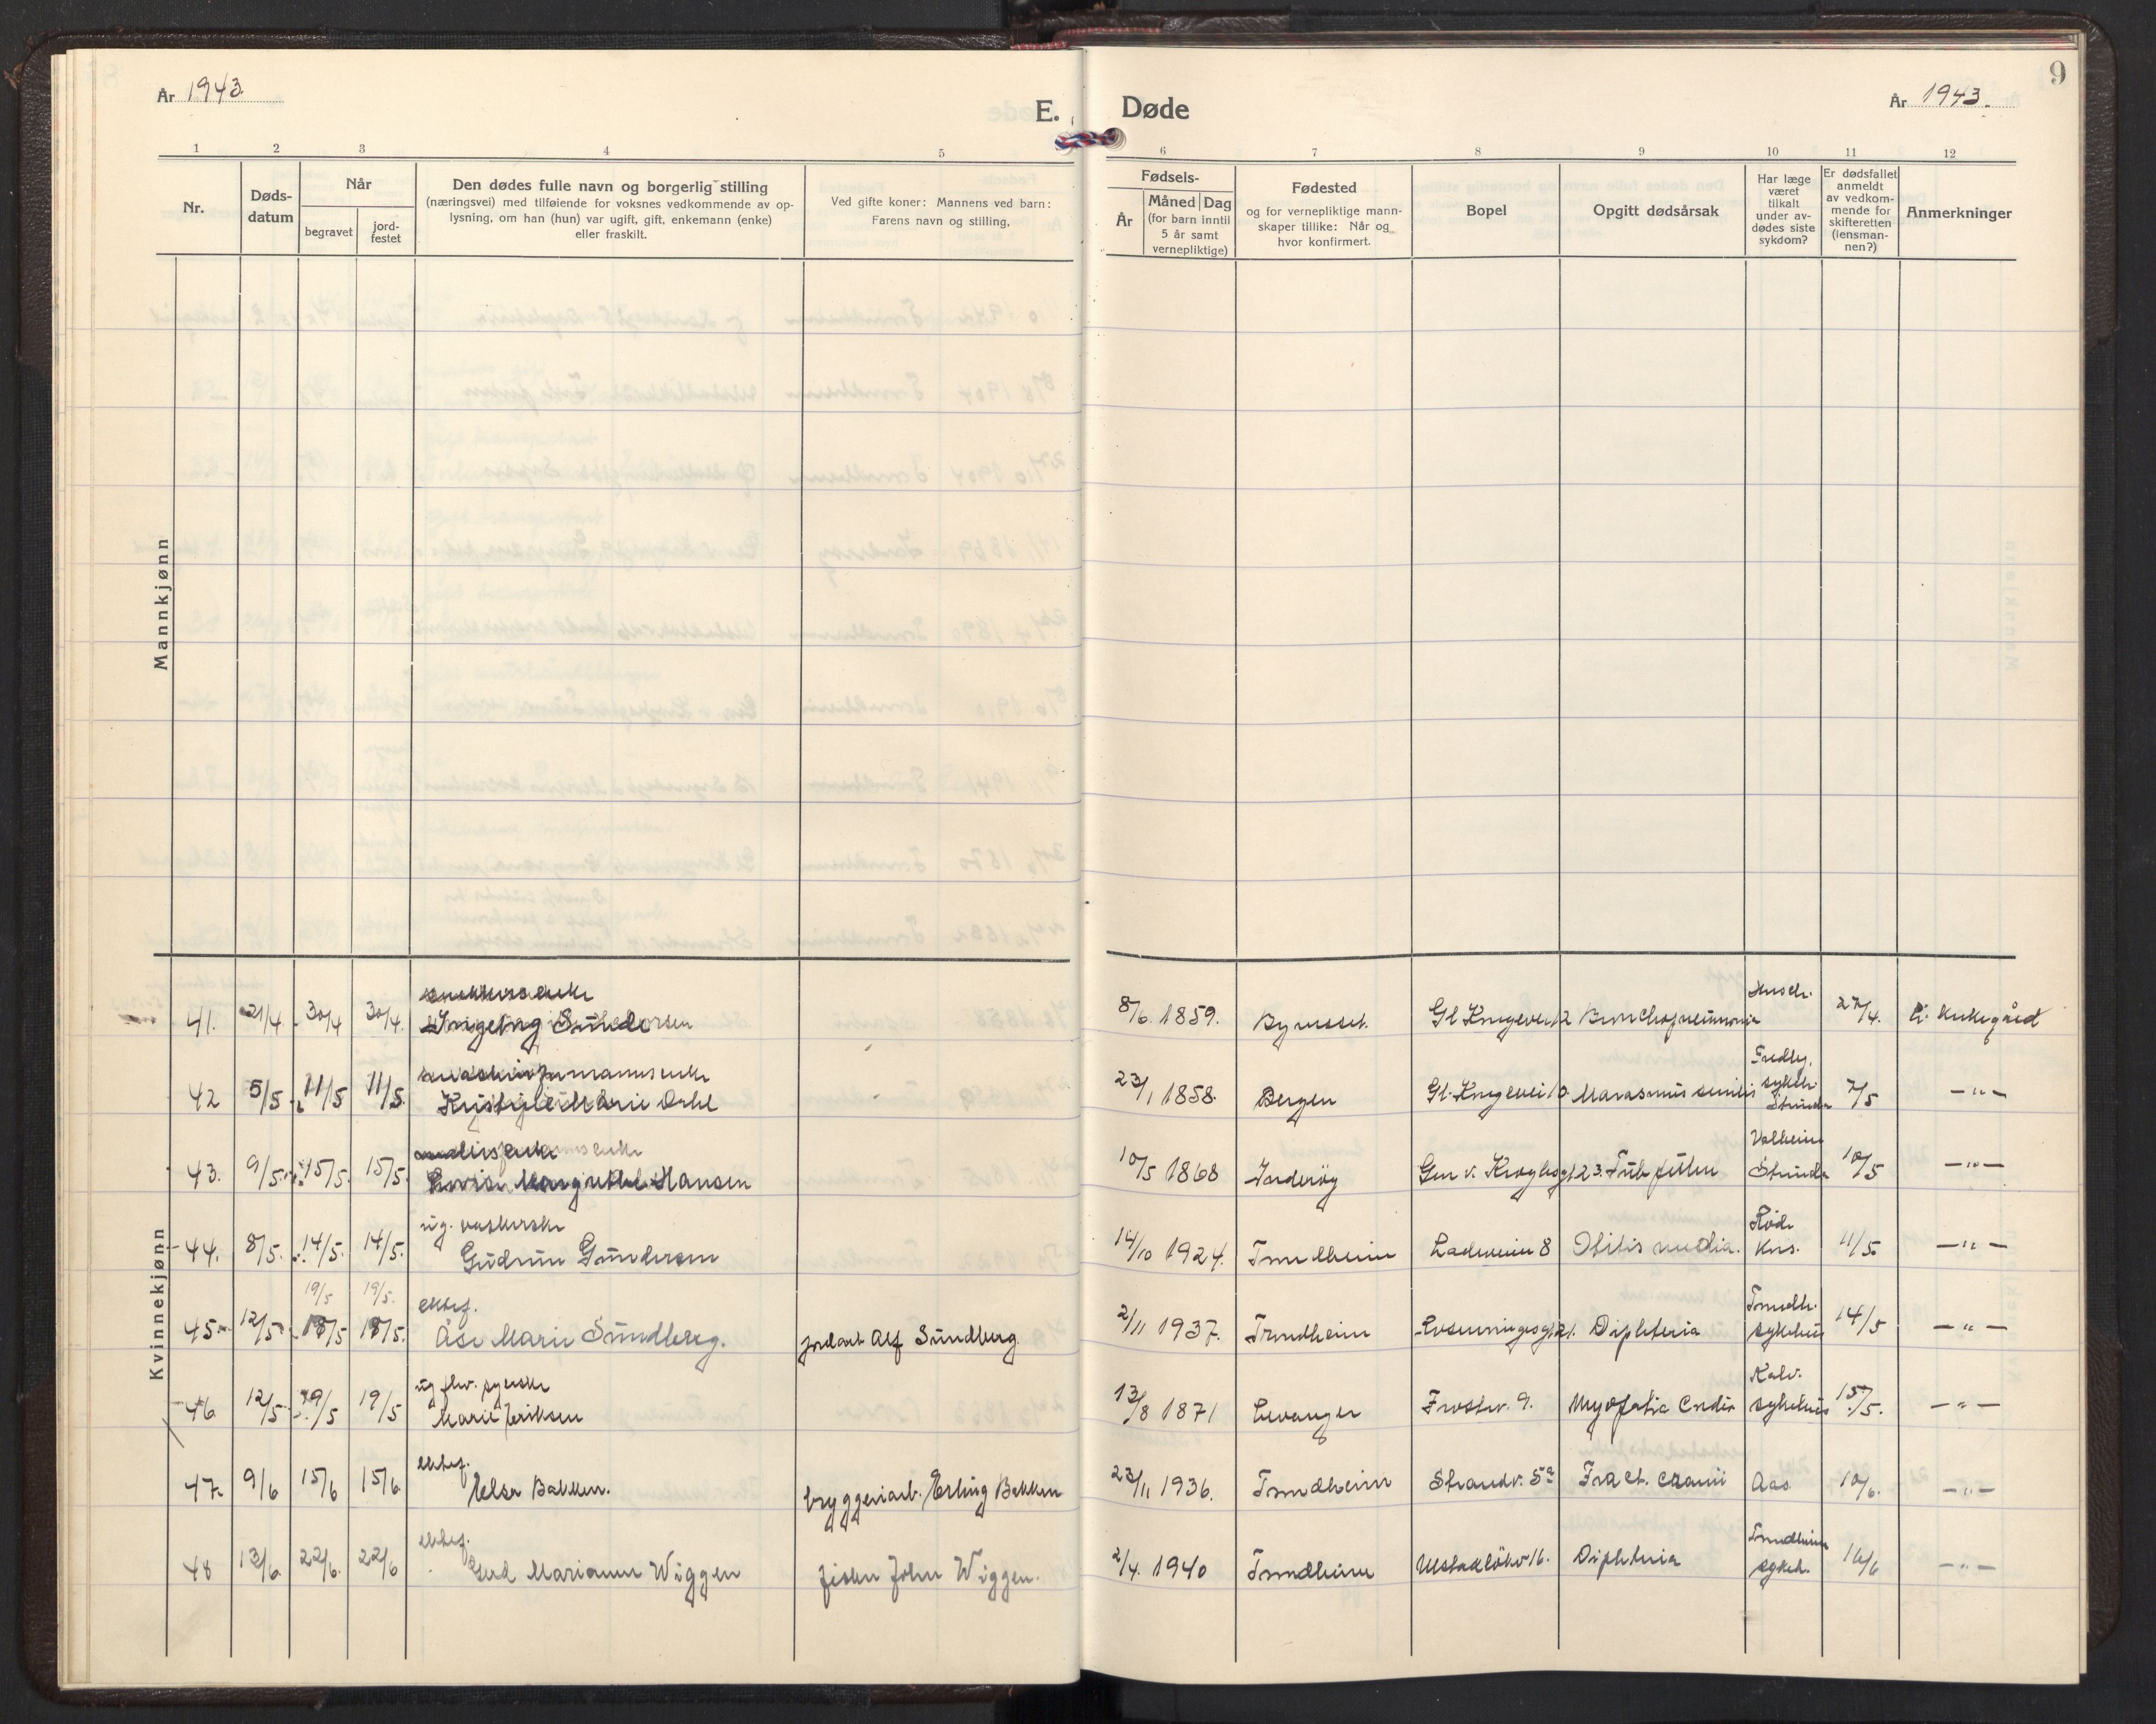 År 1943.
E. Døde
År 1943.
9
1 2 3 4 5 6 7 8 9 10 11 12
Nr.
Døds-
datum
Når
begravet
jord-
festet
Den dødes fulle navn og borgerlig stilling
(næringsvei) med tilføiende for voksnes vedkommende av op-
lysning, om han (hun) var ugift, gift, enkemann (enke)
eller fraskilt.
Ved gifte koner: Mannens ved barn:
Farens navn og stilling.
Fødsels-
År
Måned Dag
(for barn inntil
5 år samt
vernepliktige)
Fødested
og for vernepliktige mann-
skaper tillike: Når og
hvor konfirmert.
Bopel
Opgitt dødsårsak
Har læge
været
tilkalt
under av-
dødes siste
sykdom?
Er dødsfallet
anmeldt
av vedkom-
mende for
skifteretten
(lensman-
nen?)
Anmerkninger
Mannkjønn
Kvinnekjønn
41. 21/4. 30/4 30/4. Ingeborg 8/6. 1859. Bynesset. 27/4.
42 5/5 11/5 11/5 Marie Dahl 23/1 1858. Bergen Marasmus senilis 7/5 — " —
43. 9/5. 15/5. 15/5. Hansen 10/5 1868 Inderøy Strinda 10/5 — " —
44. 8/5. 14/5. 14/5. ug. vaskerske
Gudrun Gundersen 14/10 1924. Trondheim Ladeveien 8 Otitis media. Røde
Kors. 11/5 — " —
19/5 19/5.
45. 12/5 18/5 18/5. ektef.
Åse Marie Sundberg. jordarb Alf Sundberg 2/11 1937. Trondheim Difteria Trondh.
sykehus 14/5 — " —
46. 12/5 19/5 19/5 ug. syerske
Marie Eriksen 13/8 1871 Levanger Frostav. 9. Myopatia Cordis sykehus 15/5. — " —
47. 9/6 15/6 15/6 ektef.
Else Bakken. bryggeriarb. Erling Bakken 23/11 1936. Trondheim Strandv. 5a Fract. cranii Aas 10/6. — " —
48 13/6. 22/6. 22/6 ektef.
Gerd Marianne Wiggen fisker John Wiggen. 2/4. 1940 Trondheim Difteria Trondheim
sykeh. 16/6 — " —